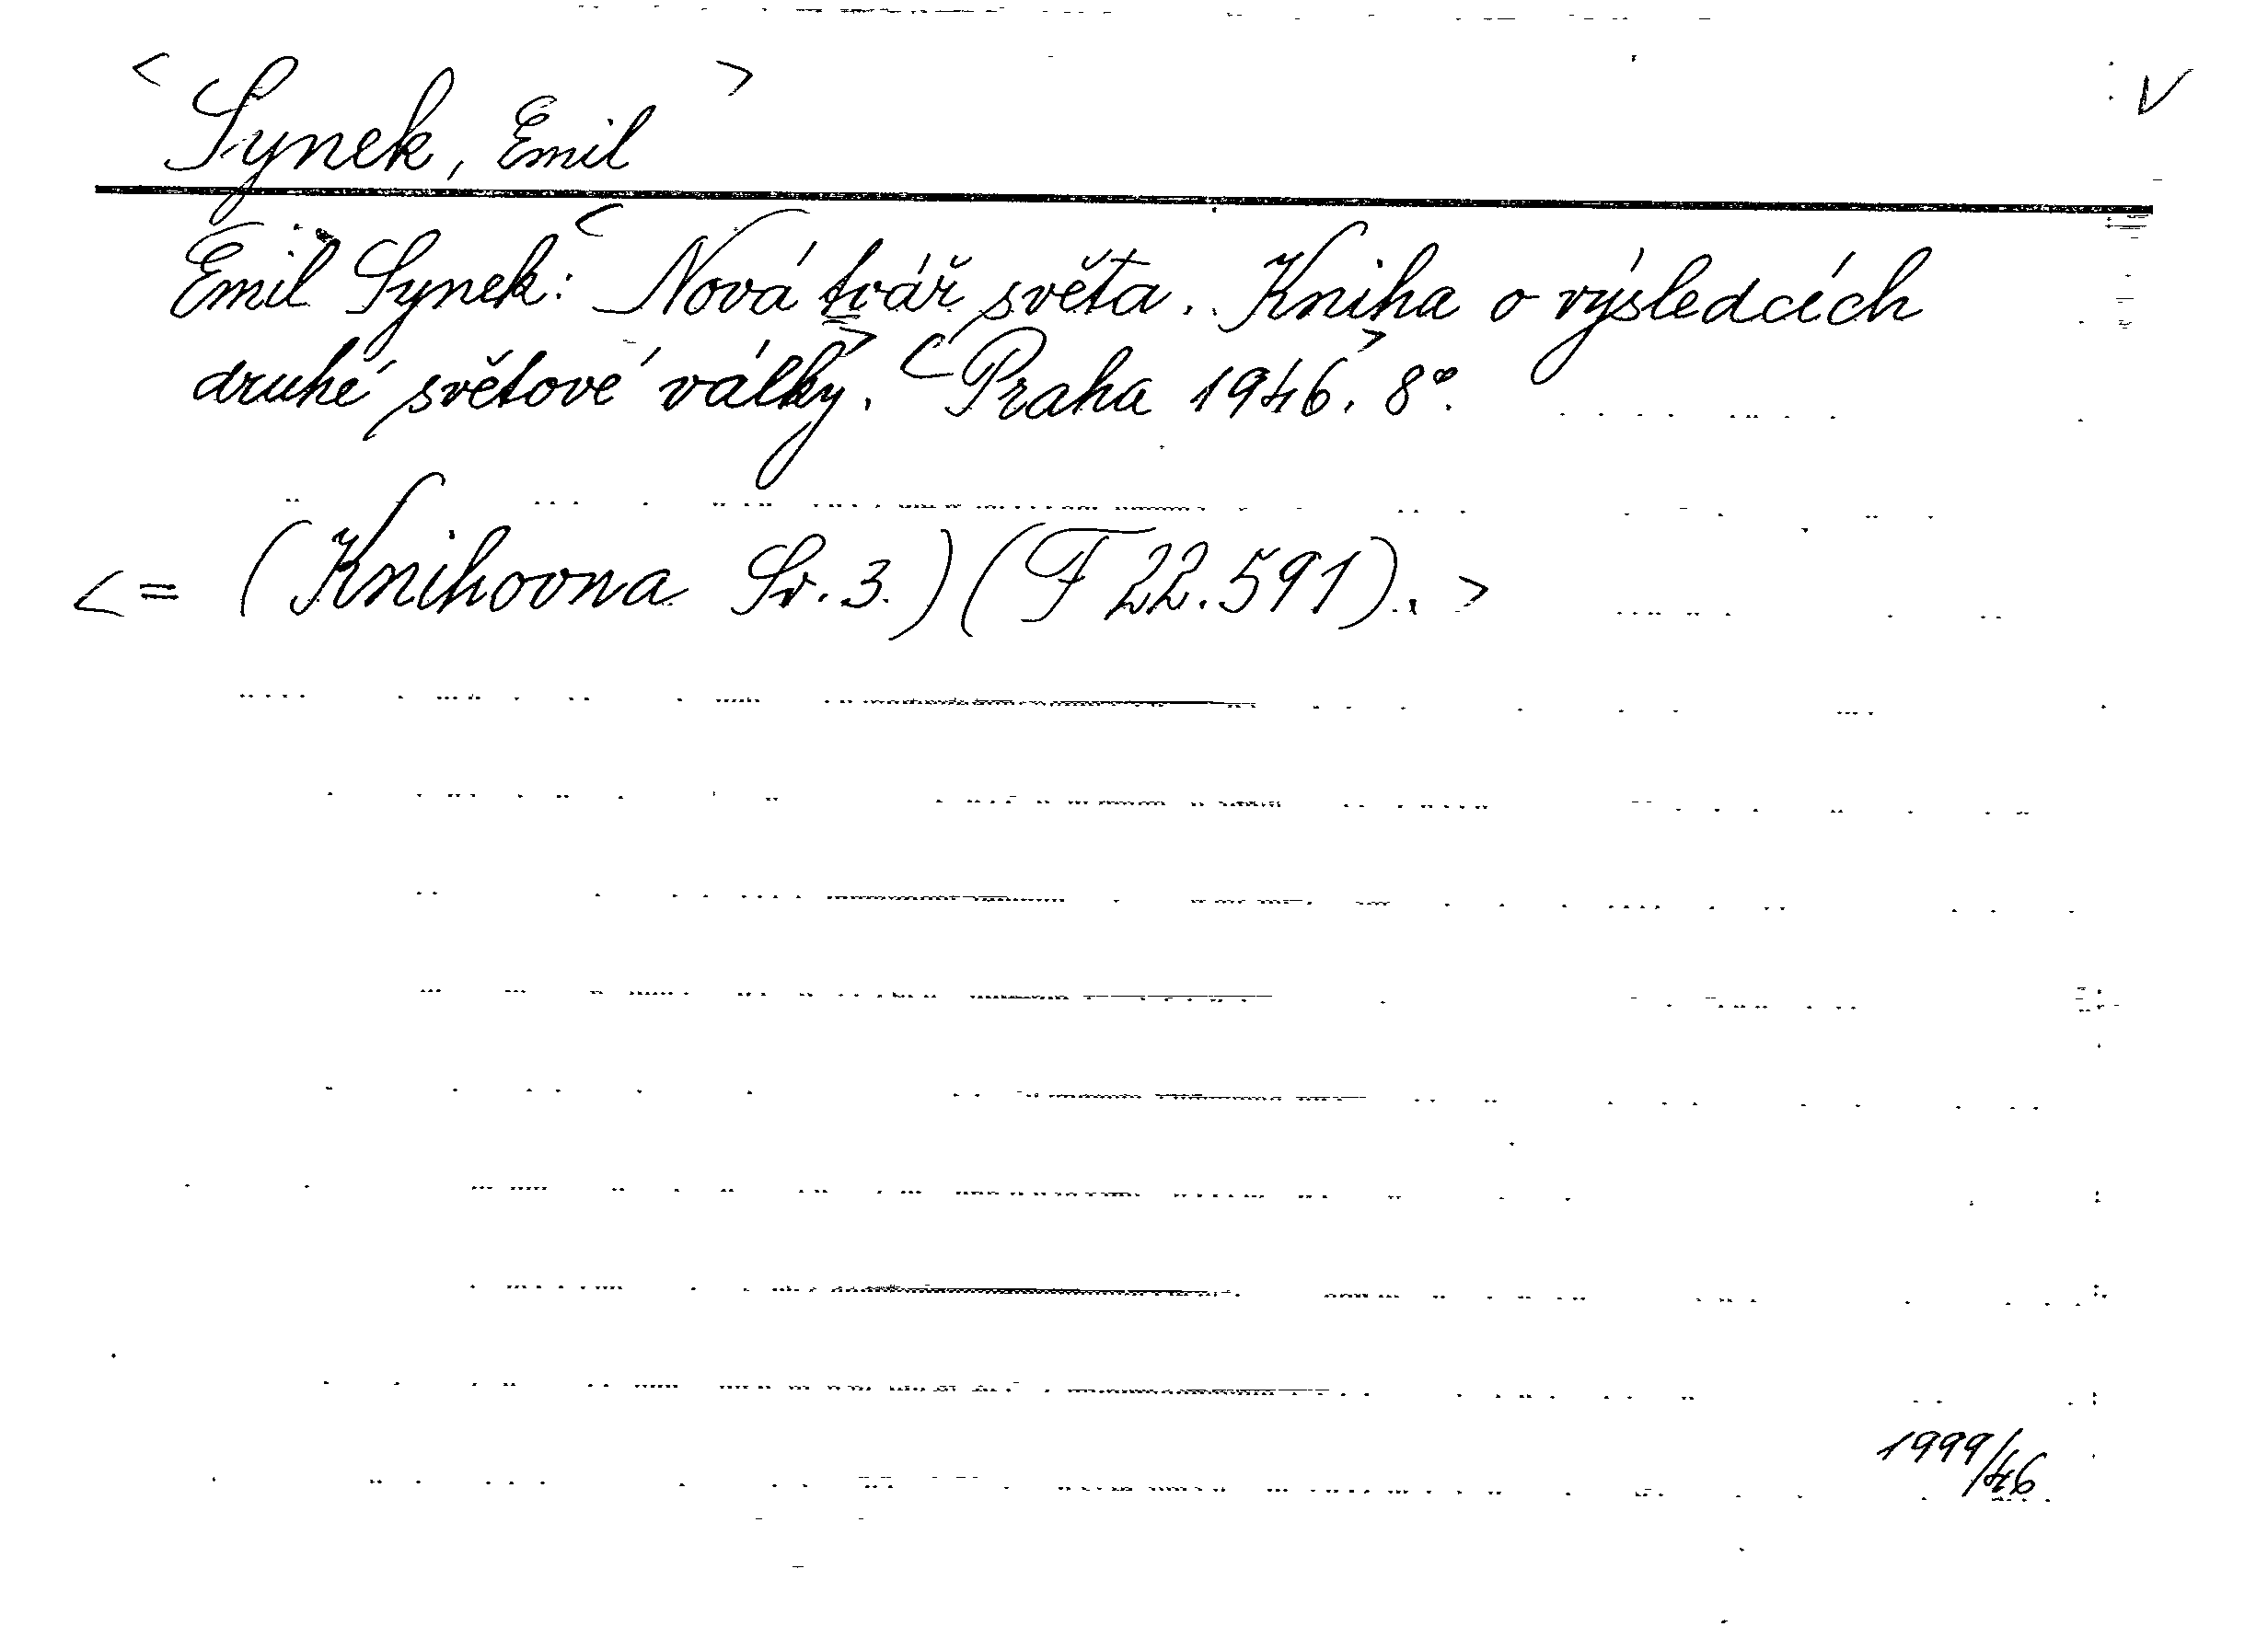 < Synek, Emil > V
Emil Synek: < Nová tvář světa. Kniha o výsledcích
druhé světové války. > < Praha 1946. > 8°.
< = (Knihovna Sv. 3.) (F 22.591). >
1999/46